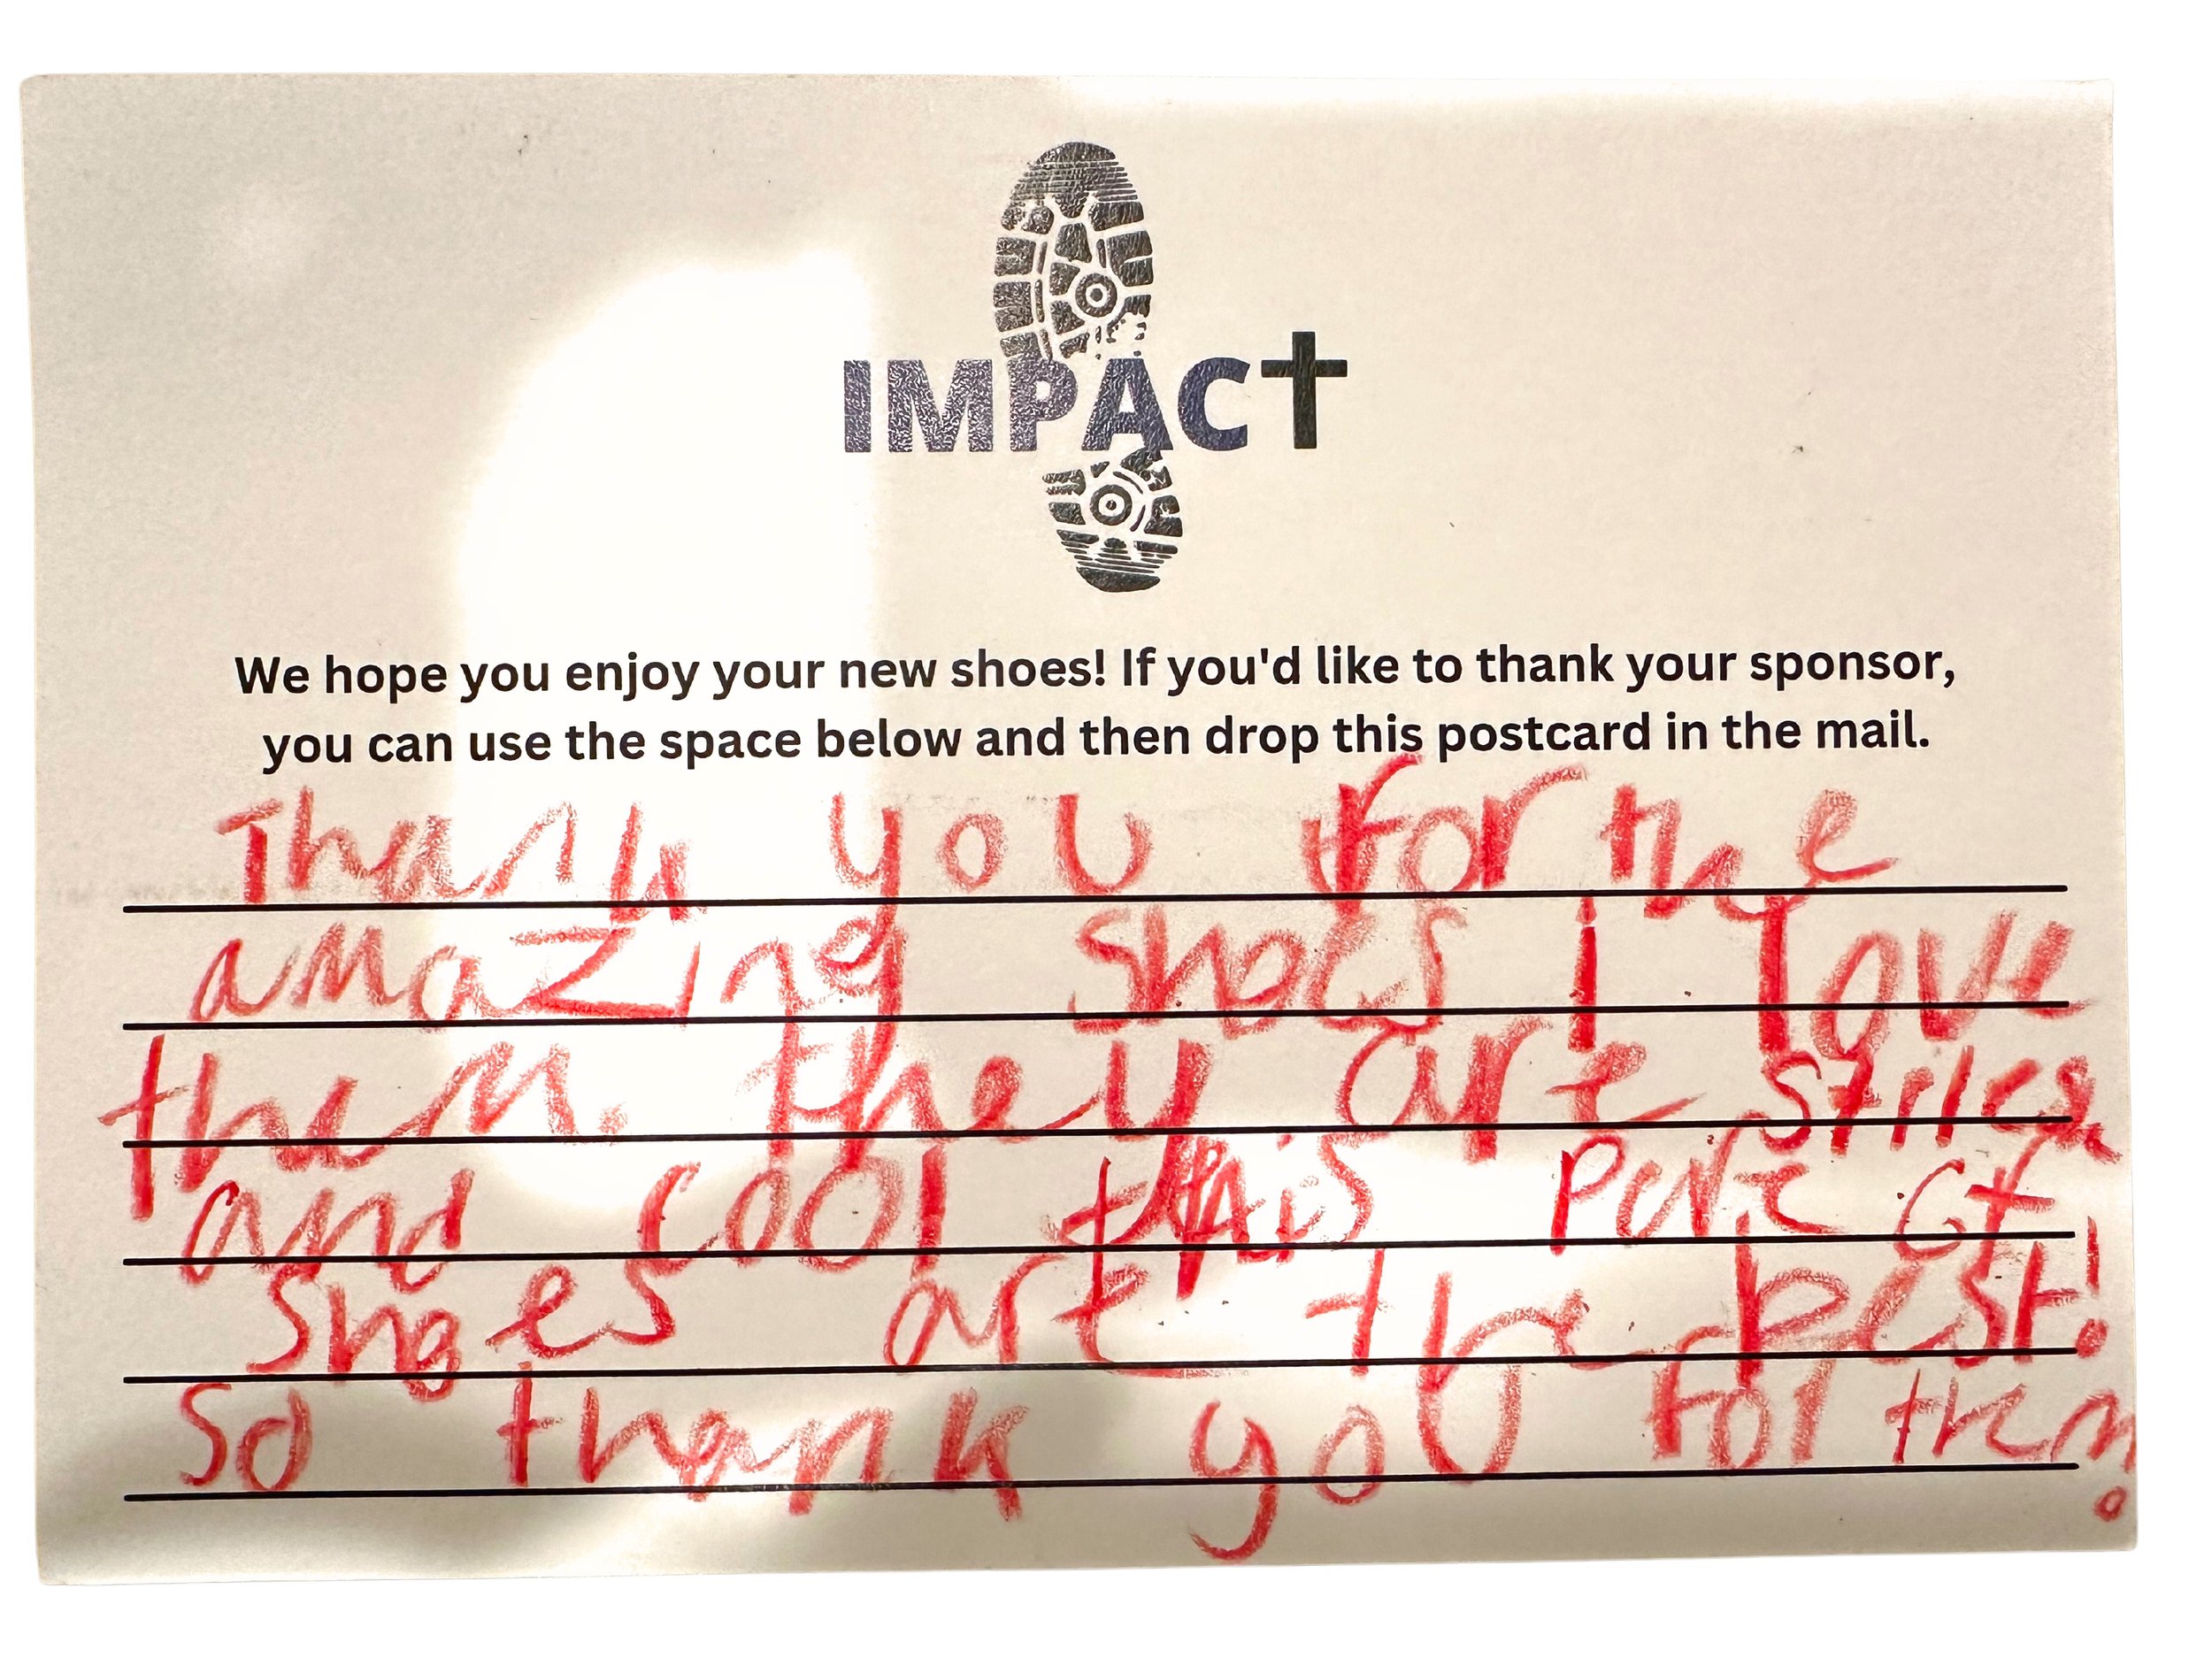 IMPACT
We hope you enjoy your new shoes! If you'd like to thank your sponsor,
you can use the space below and then drop this postcard in the mail.
Thank you for the
amazing shoes i love
them. they are
and cool this pere of
shoes are the best!
so thank you for them